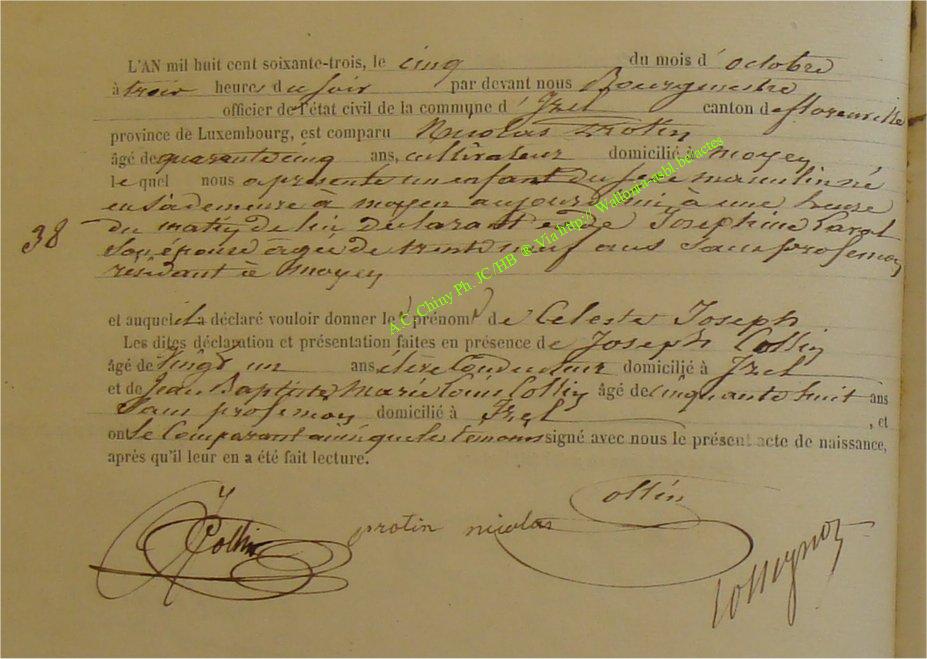 L'AN mil huit cent soixante-trois, le cinq du mois d'octobre
à trois heures du soir par devant nous Bourgmestre
officier de l'état civil de la commune d'Izel canton de florenville
province de Luxembourg, est comparu Nicolas Protin
âgé de quarante cinq ans, cultivateur domicilié à moyen
lequel nous a présenté un enfant du sexe masculin né
en sa demeure a moyen aujourd'hui à une heure
38
du matin de lui déclarant et de Josephine
Son épouse agée de trente neuf ans Sans profession
résidant à moyen
et auquel il a déclaré vouloir donner le prénom de Celeste Joseph
Les dites déclaration et présentation faites en présence de Joseph Collin
âgé de Vingt un ans élève Conducteur domicilié à Izel
et de Jean Baptiste Marie Louis Collin âgé de cinquante huit ans
Sans profession domicilié à Izel , et
ont le Comparant ainsi que les témoins signé avec nous le présent acte de naissance,
après qu'il leur en a été fait lecture.
J Collin protin nicolas Collin
A.C. Chiny Ph. JC/HB ® Via http:// Wallonia-asbl.be/actes